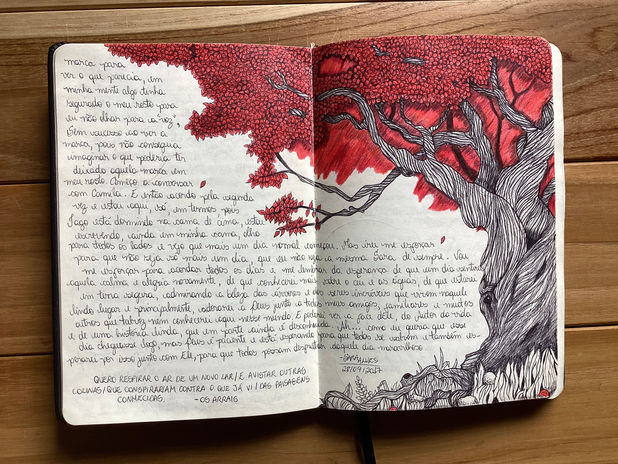 marca para
ver o que parecia, em
minha mente algo tinha
segurado o meu rosto para
eu não olhar para a "voz",
sem sucesso ao ver a
marca, pois não conseguia
imaginar o que poderia ter
deixado aquela marca em
meu rosto. Começo a conversar
com Camila. E então acordo pela segunda
vez e estou aqui, só, em termos, pois
Iago está dormindo na cama de cima, estou
escrevendo, ainda em minha cama, olho
para todos os lados e vejo que mais um dia normal começou. Mas irei me esforçar
para que não seja só mais um dia, que eu não seja a mesma Sara de sempre. Vou
me esforçar para acordar todos os dias e me lembrar da esperança de que um dia sentirei
aquela calma e alegria novamente, de que conhecerei mais sobre o céu e as águas, de que estarei
em terra segura, admirando a beleza das árvores e dos seres incríveis que vivem naquele
lindo lugar e principalmente, adorarei a Deus junto a todos meus amigos, familiares e muitos
outros que talvez nem conhecerei aqui nesse mundo. E poderei ver a face dEle, do Autor da vida
e de uma história linda, que em parte ainda é desconhecida. Ah... como eu queria que esse
dia chegasse logo, mas Deus é paciente e está esperando para que todos se salvem e também es-
perarei por isso junto com Ele, para que todos possam desfrutar daquele dia maravilhoso.
28/09/2017
QUERO RESPIRAR O AR DE UM NOVO LAR / E AVISTAR OUTRAS
COLINAS / QUE CONSPIRARIAM CONTRA O QUE JÁ VI / DAS PAISAGENS
CONHECIDAS. - OS ARRAIS